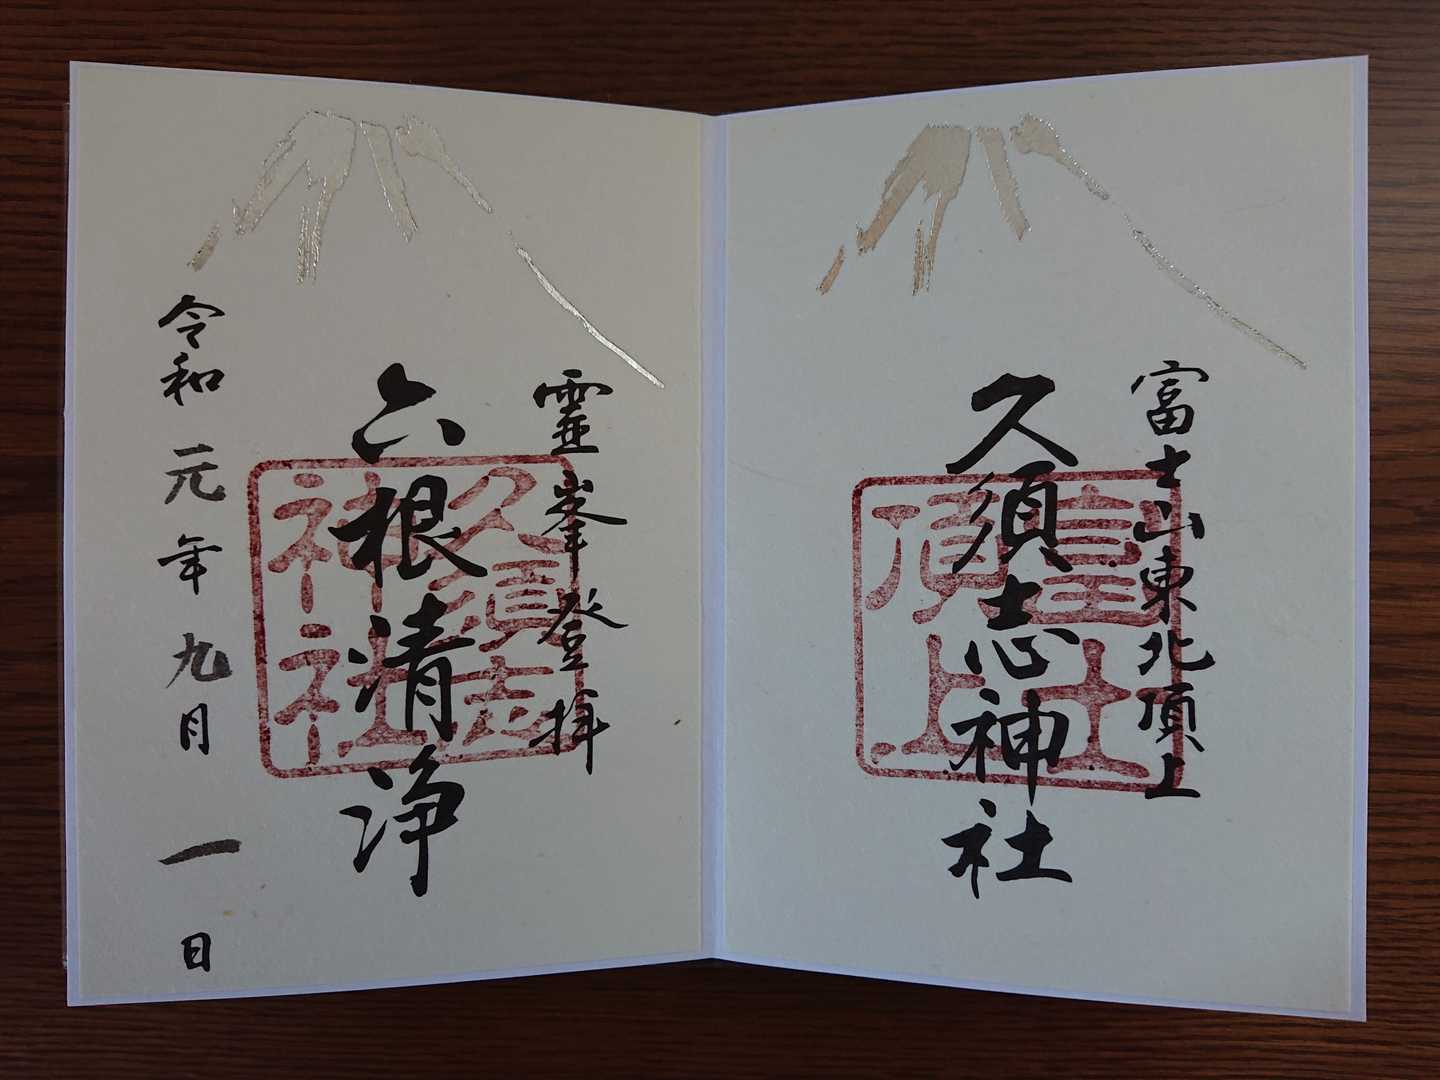 富士山東北頂上
久須志神社
富士頂上
靈峯登拝
六根清浄
久須志神社
令和元年九月一日